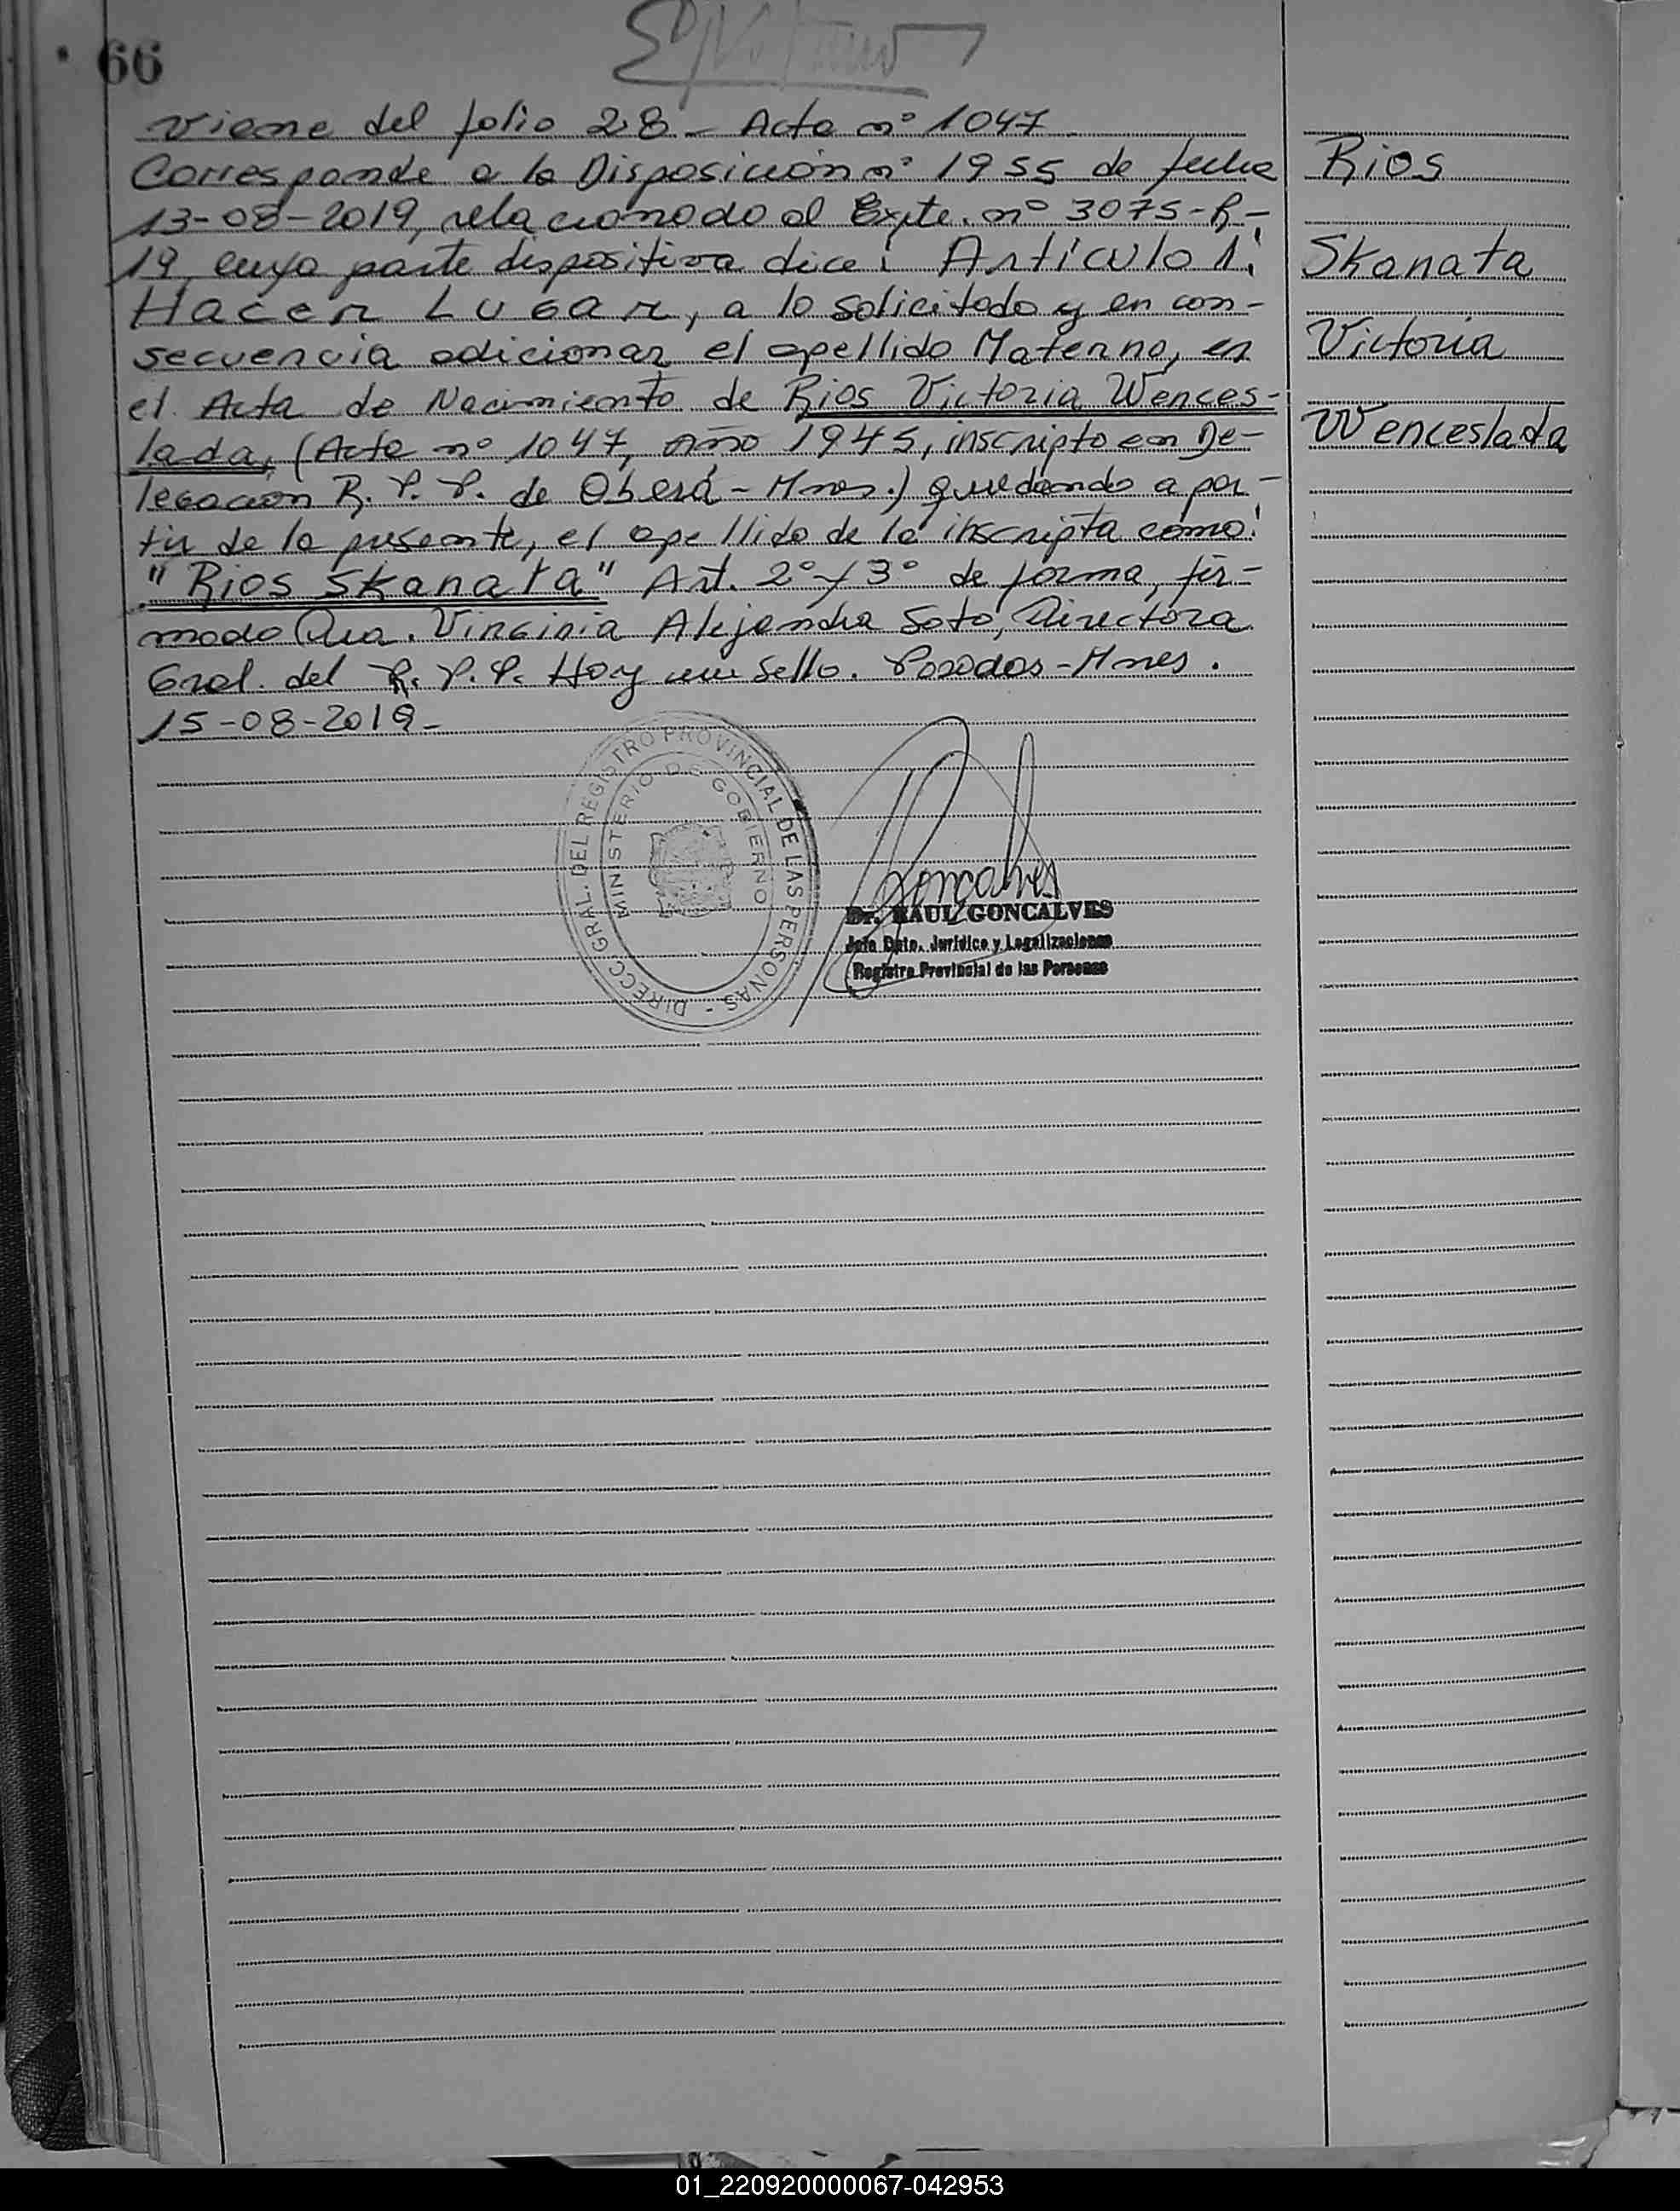 66
Viene del folio 28 - Acta nº 1047
Corresponde a la Disposición nº 1955 de fecha
13-08-2019, relacionado al Expte. nº 3075-R-
19, cuya parte dispositiva dice: Artículo 1:
Hacer Lugar, a lo solicitado y en con-
secuencia adicionar el apellido Materno, en
el Acta de Nacimiento de Rios Victoria Wences-
lada, (Acta nº 1047, Año 1945, inscripto en De-
legación R. P. P. de Oberá - Mnes.) quedando a par-
tir de la presente, el apellido de la inscripta como:
"Rios Skanata" Art. 2º y 3º de forma, fir-
mado Dra. Virginia Alejandra Soto, Directora
Gral. del R. P. P. Hay un Sello. Posadas - Mnes.
15-08-2019-
Rios
Skanata
Victoria
Wenceslada
DIRECC. GRAL. DEL REGISTRO PROVINCIAL DE LAS PERSONAS -
MINISTERIO DE GOBIERNO
Goncalves
Dr. RAUL GONCALVES
Jefe Dpto. Jurídico y Legalizaciones
Registro Provincial de las Personas
01_220920000067-042953